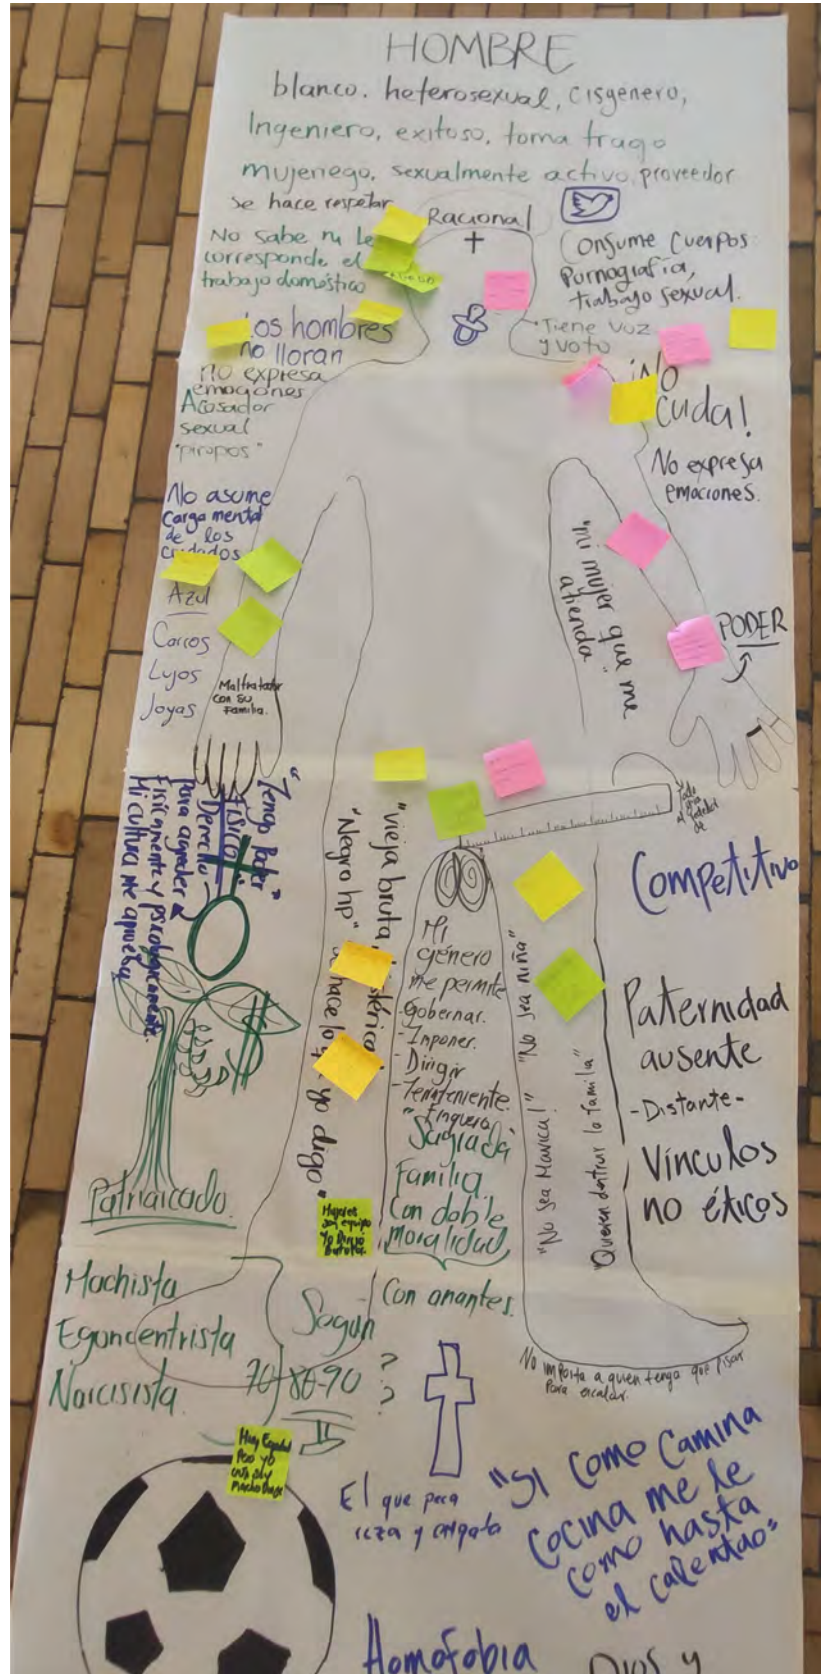 HOMBRE
blanco. heterosexual, cisgenero,
Ingeniero, exitoso, toma trago
mujeriego, sexualmente activo, proveedor
se hace respetar
Racional
No sabe ni le
corresponde el
trabajo doméstico
Consume Cuerpos
Pornografía,
trabajo sexual.
Tiene voz
y voto
los hombres
no lloran
no expresa
emociones
Acosador
sexual
"piropos"
¡No
Cuida!
No expresa
emociones.
No asume
carga mental
de los
cuidados
Azul
Carros
Lujos
Joyas
Maltratador
con su
Familia.
"mi mujer que me
atienda"
PODER
"Tengo Poder"
FISICO
Derecho
Para agredir
Fisicamente y psicologicamente.
Mi cultura me aprueba
"vieja bruta,
"Negro hp"
yo digo"
Mi
género
me permite
-Gobernar.
-Imponer.
-Dirigir
-Terrateniente.
Sagrada
Familia
Con doble
moralidad
Con amantes.
"No sea niña"
"No sea Marica!"
"Quieren destruir la familia"
Competitivo
Paternidad
ausente
-Distante-
Vínculos
no éticos
Patriarcado.
Mujeres
Machista
Egoncentrista
Narcisista.
Según
70 80-90 ?
?
No importa a quien tenga que pisar
Para escalar.
El que peca
reza y empata
"SI como camina
cocina me le
como hasta
el calentao"
Homofobia
Dios y